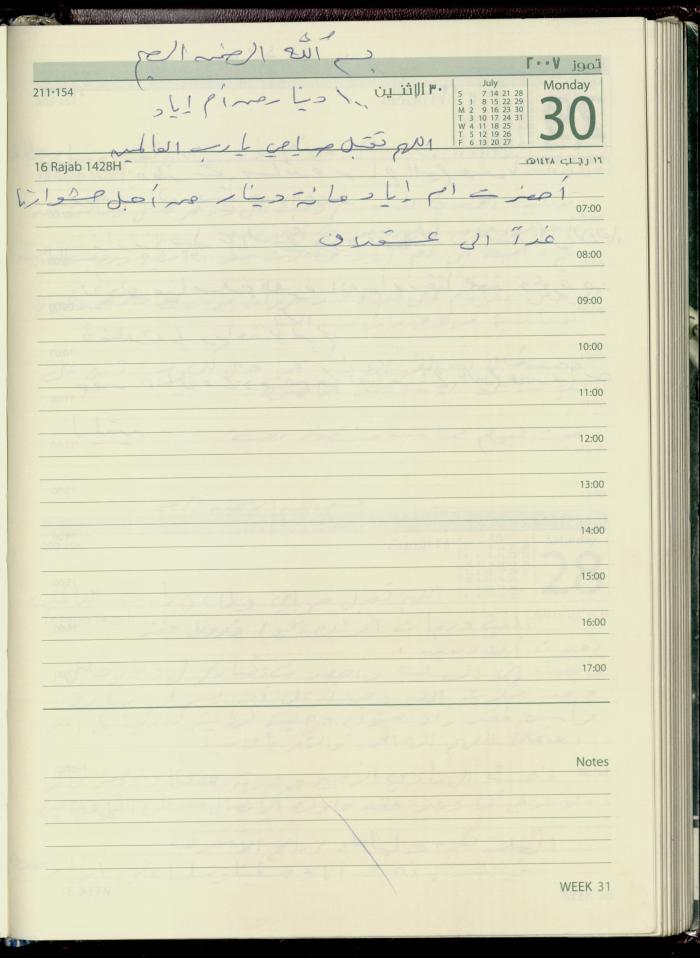 بسم الله الرحمن الرحيم
تموز ٢٠٠٧
211-154
٣٠ الاثنين
July
S 7 14 21 28
S 1 8 15 22 29
M 2 9 16 23 30
T 3 10 17 24 31
W 4 11 18 25
T 5 12 19 26
F 6 13 20 27
Monday
30
١٠٠ دينار من أم إياد
اللهم تقبل صيامي يا رب العالمين
16 Rajab 1428H
١٦ رجب ١٤٢٨هـ
أحضرت ام إياد مائة دينار من أجل مشوارنا
07:00
غداً الى عسقلان
08:00
09:00
10:00
11:00
12:00
13:00
14:00
15:00
16:00
17:00
Notes
WEEK 31